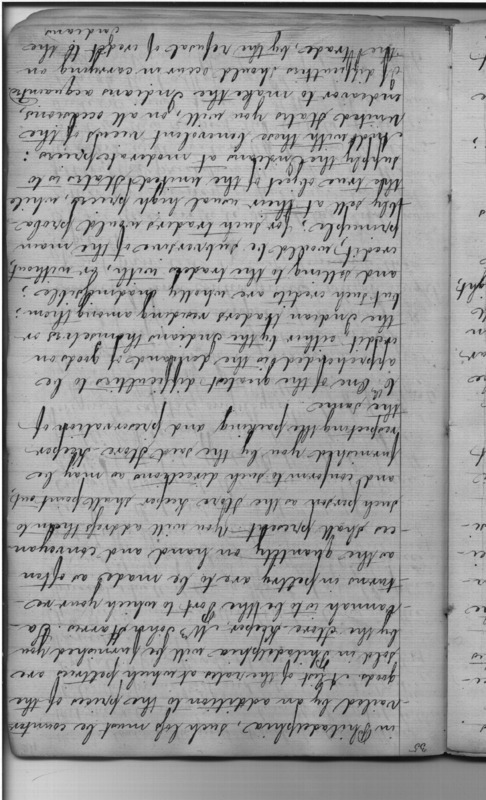 35
in Philadelphia, such loss must be counter-
vailed by an addition to the prices of the
goods. A list of the rates at which peltries are
sold in Philadelphia will be furnished you
by the Store Keeper, Mr. John Harris. Sa-
vannah is to be the Port to which your re-
turns in peltry are to be made as often
as the quantity on hand and conveyan-
ces shall present. You will address them to
such person as the Store Keeper shall point out,
and conform to such directions as may be
furnished you by the said Store Keeper
respecting the packing and preservation of
the same
6th One of the greatest difficulties to be
apprehended is the demand of goods on
credit either by the Indians themselves or
the Indian traders residing among them;
but such credits are wholly inadmissible;
and selling to the traders with, or without,
credit, would be subversive of the main
principle, for such traders would proba-
bly sell at their usual high prices, while
the true object of the united States is to
supply the Indians at moderate prices:
with these benevolent views of the
United States you will, on all occasions,
endeavor to make the Indians acquainted.
If difficulties should occur in carrying on
the trade, by the refusal of credit to the
Indians